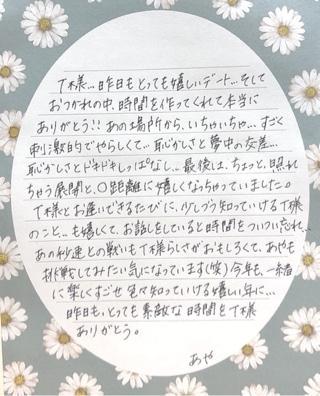 T様…昨日もとっても嬉しいデート…そして
おつかれの中、時間を作ってくれて本当に
ありがとう!!あの場所から、いちゃいちゃ…すごく
刺激的でやらしくて…恥ずかしさと夢中の交差…
恥ずかしさとドキドキしっぱなし…最後は、ちょっと、照れ
ちゃう展開と、〇距離に嬉しくなっちゃっていました。
T様とお逢いできるたびに、少しづつ知っていけるT様
のこと…も嬉しくて、お話をしていると時間をついつい忘れ…
あの秒速との戦いもT様らしさがおもしろくて、あやも
挑戦してみたい気になっています(笑)今年も、一緒
に楽しくすごせ色々知っていける嬉しい年に…
昨日も、とっても素敵な時間をT様
ありがとう。
あや